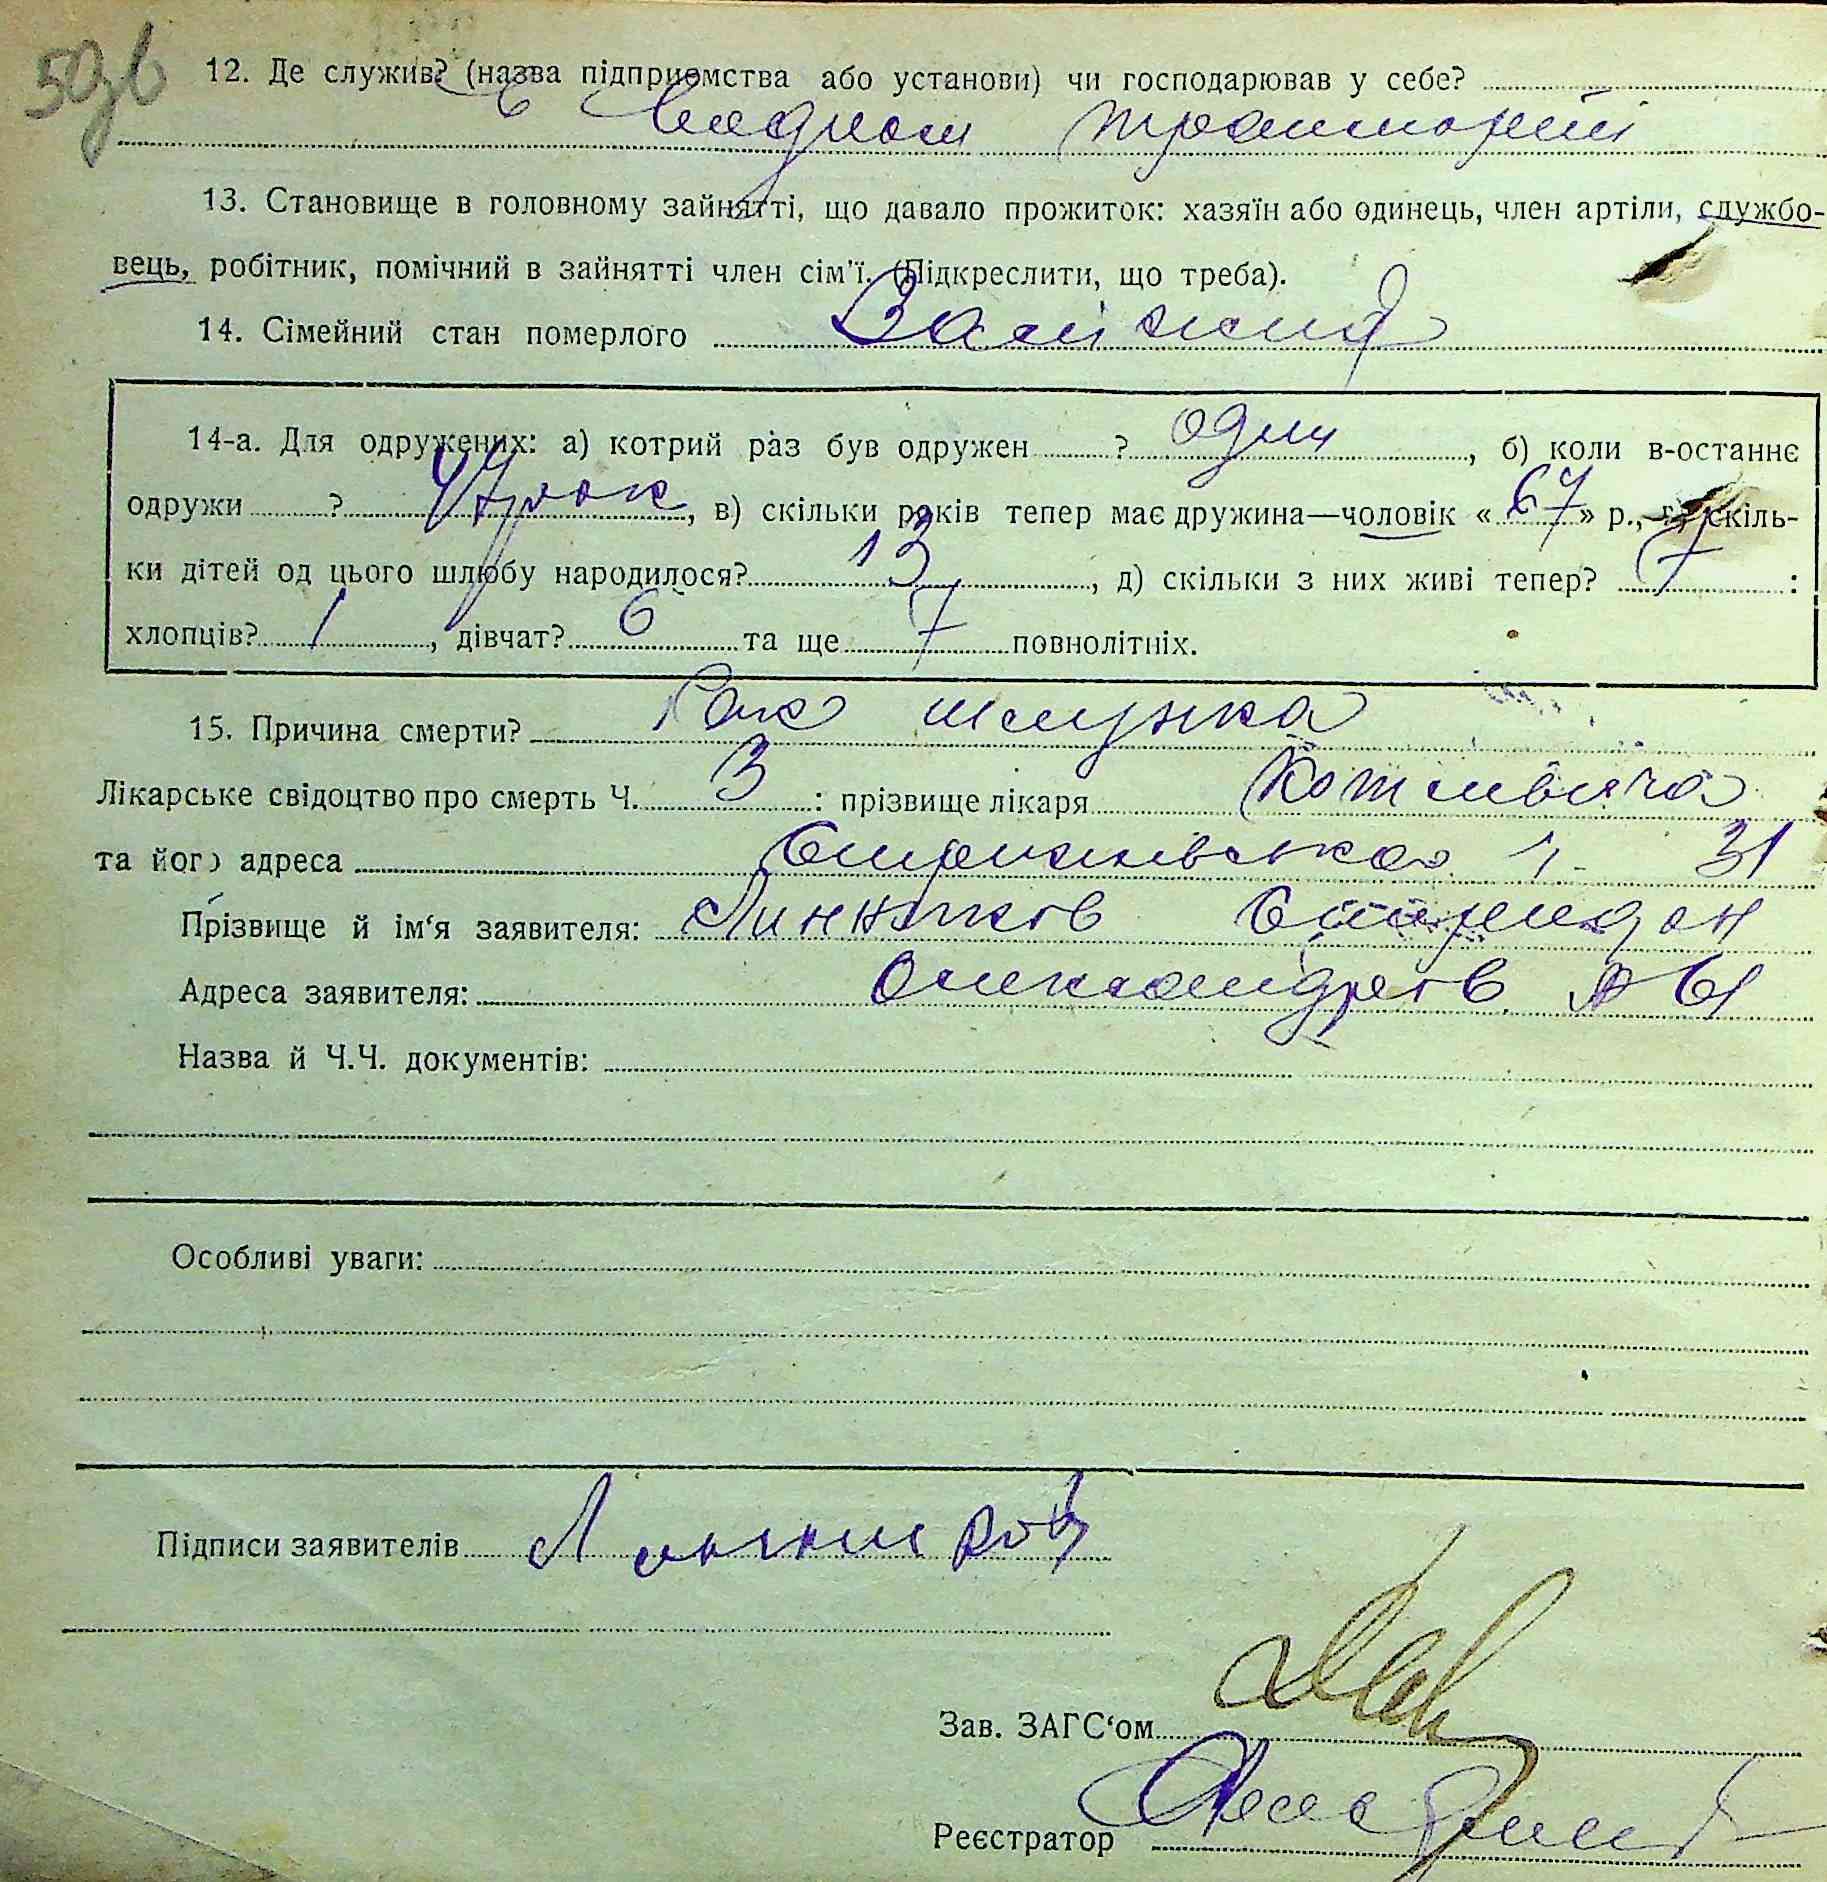 50зв
12. Де служив? (назва підприємства або установи) чи господарював у себе?
в
13. Становище в головному зайнятті, що давало прожиток: хазяїн або одинець, член артіли, службо-
вець, робітник, помічний в зайнятті член сім'ї. (Підкреслити, що треба).
14. Сімейний стан померлого Заміжня
14-а. Для одружених: а) котрий раз був одружен ? один, б) коли в-останнє
одружи ? 47 рок, в) скільки років тепер має дружина—чоловік «67» р., г) скіль-
ки дітей од цього шлюбу народилося? 13, д) скільки з них живі тепер? 7:
хлопців? 1, дівчат? 6 та ще 7 повнолітніх.
15. Причина смерти? Рак шлунка
Лікарське свідоцтво про смерть Ч. 3: прізвище лікаря
та його адреса 31
Прізвище й ім‘я заявителя: Линников Спиридон
Адреса заявителя: Олександрів № 61
Назва й Ч.Ч. документів:
Особливі уваги:
Підписи заявителів Линников
Зав. ЗАГС‘ом
Реєстратор